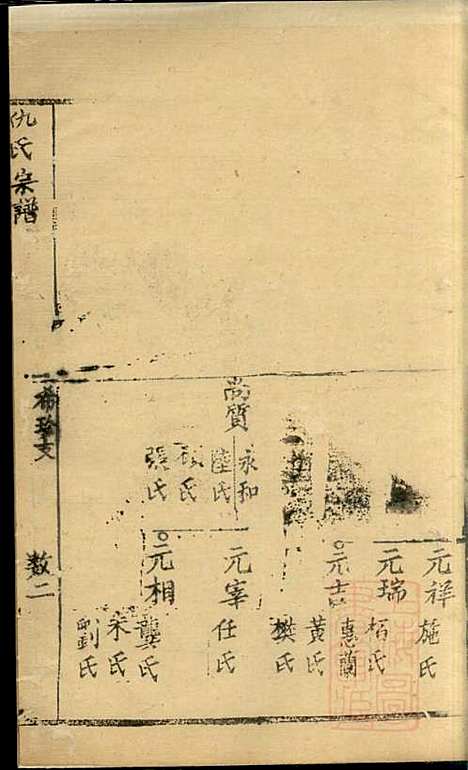 元祥
施氏
元瑞
栢氏
元吉
惠蘭
黄氏
樊氏
尚質
永和
陸氏
氏
張氏
元宰
任氏
元相
龔氏
朱氏
劉氏
仇氏宗譜
希珍支
数二